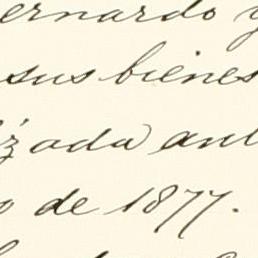 ernardo y
sus bienes
izada ant
o de 1877.